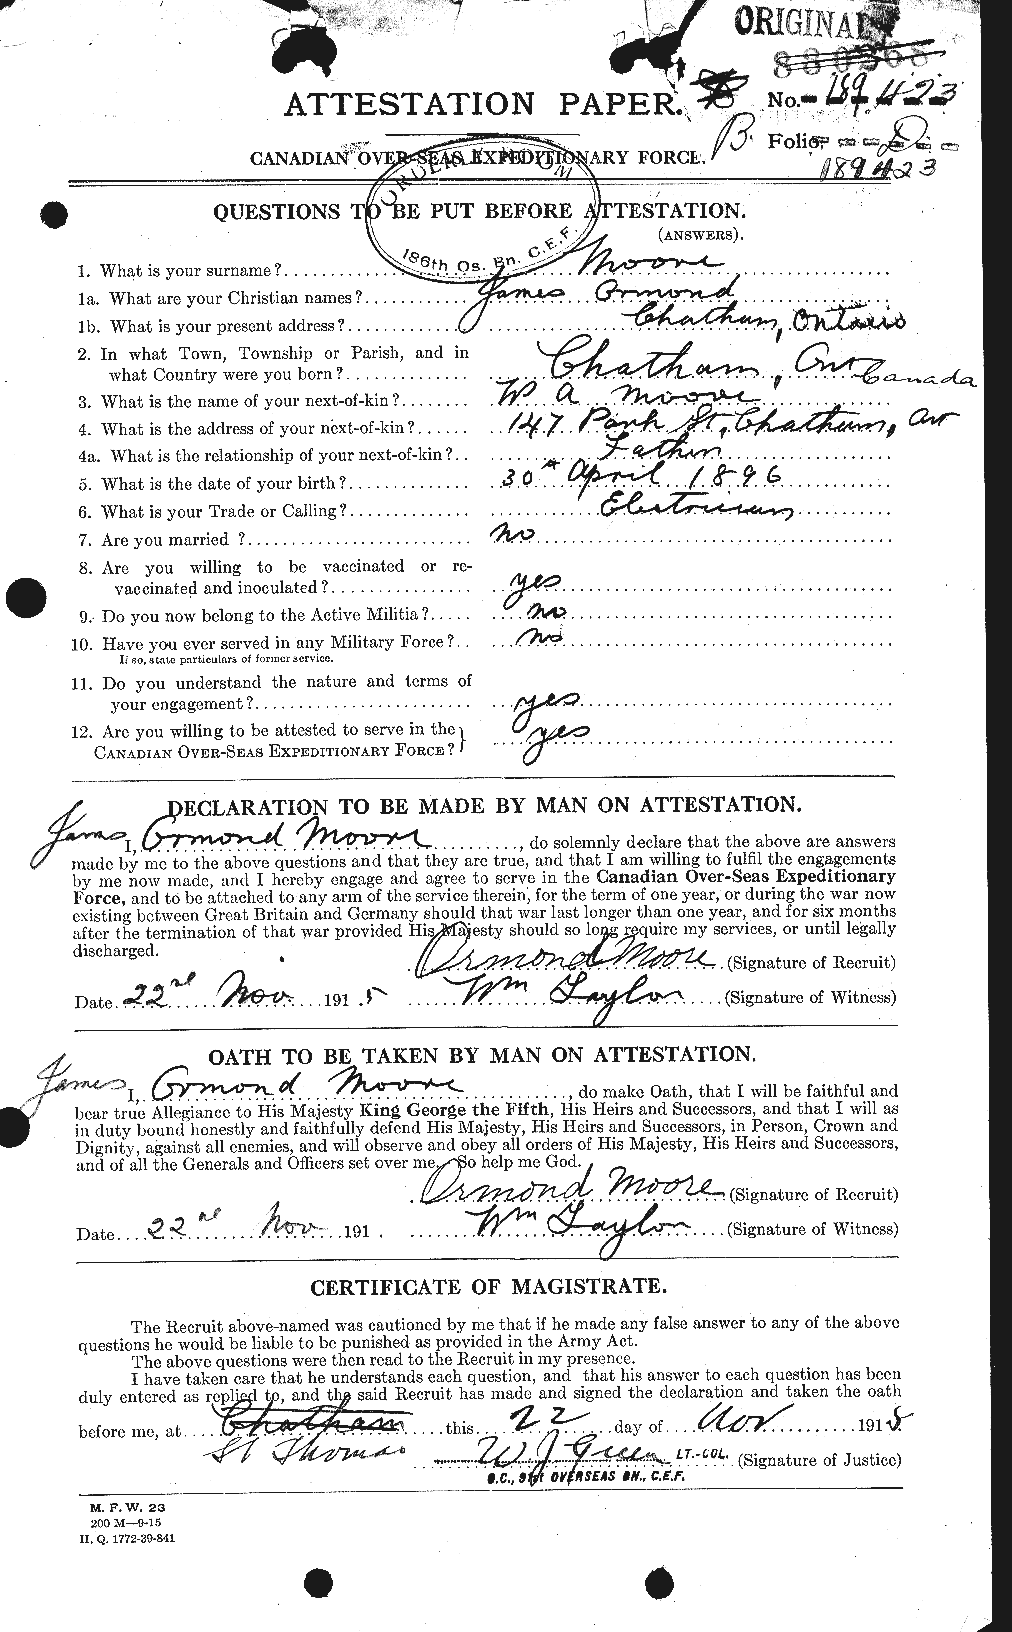 ORIGINAL
880368
ATTESTATION PAPER.
No. 189423
B. Folio. D
CANADIAN OVER-SEAS EXPEDITIONARY FORCE.
189423
ORDERLY ROOM
186th Os. Bn. C.E.F.
QUESTIONS TO BE PUT BEFORE ATTESTATION.
(ANSWERS).
1. What is your surname? Moore
1a. What are your Christian names? James Ormond
1b. What is your present address? Chatham, Ontario
2. In what Town, Township or Parish, and in
what Country were you born? Chatham, Ont Canada
3. What is the name of your next-of-kin? W A Moore
4. What is the address of your next-of-kin? 147 Park St, Chatham, Ont
4a. What is the relationship of your next-of-kin? Father
5. What is the date of your birth? 30th April 1896
6. What is your Trade or Calling? Electrician
7. Are you married ? no
8. Are you willing to be vaccinated or re-
vaccinated and inoculated? yes
9. Do you now belong to the Active Militia? no
10. Have you ever served in any Military Force? no
If so, state particulars of former service.
11. Do you understand the nature and terms of
your engagement? yes
12. Are you willing to be attested to serve in the
CANADIAN OVER-SEAS EXPEDITIONARY FORCE? yes
DECLARATION TO BE MADE BY MAN ON ATTESTATION.
James I, Ormond Moore, do solemnly declare that the above are answers
made by me to the above questions and that they are true, and that I am willing to fulfil the engagements
by me now made, and I hereby engage and agree to serve in the Canadian Over-Seas Expeditionary
Force, and to be attached to any arm of the service therein, for the term of one year, or during the war now
existing between Great Britain and Germany should that war last longer than one year, and for six months
after the termination of that war provided His Majesty should so long require my services, or until legally
discharged.
Ormond Moore (Signature of Recruit)
Date 22nd Nov 1915 Wm Taylor (Signature of Witness)
OATH TO BE TAKEN BY MAN ON ATTESTATION.
James I, Ormond Moore, do make Oath, that I will be faithful and
bear true Allegiance to His Majesty King George the Fifth, His Heirs and Successors, and that I will as
in duty bound honestly and faithfully defend His Majesty, His Heirs and Successors, in Person, Crown and
Dignity, against all enemies, and will observe and obey all orders of His Majesty, His Heirs and Successors,
and of all the Generals and Officers set over me. So help me God.
Ormond Moore (Signature of Recruit)
Date 22nd Nov 191 . Wm Taylor (Signature of Witness)
CERTIFICATE OF MAGISTRATE.
The Recruit above-named was cautioned by me that if he made any false answer to any of the above
questions he would be liable to be punished as provided in the Army Act.
The above questions were then read to the Recruit in my presence.
I have taken care that he understands each question, and that his answer to each question has been
duly entered as replied to, and the said Recruit has made and signed the declaration and taken the oath
before me, at Chatham this 22 day of Nov 1915
St Thomas W J Green LT.-COL. (Signature of Justice)
O.C., 91st OVERSEAS BN., C.E.F.
M. F. W. 23
200 M—9-15
H. Q. 1772-39-841